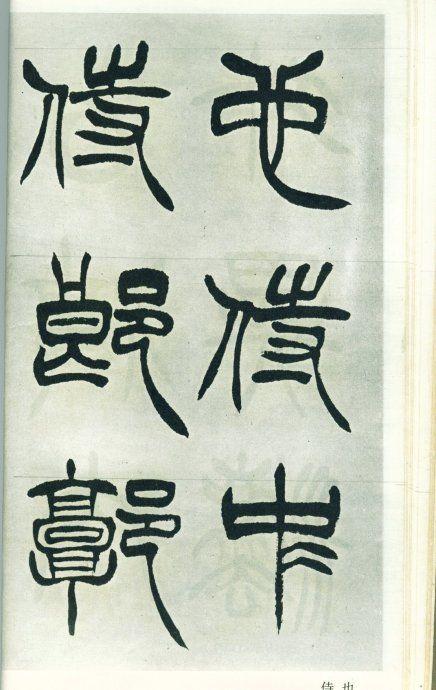 也侍中
侍郎郭
也
侍